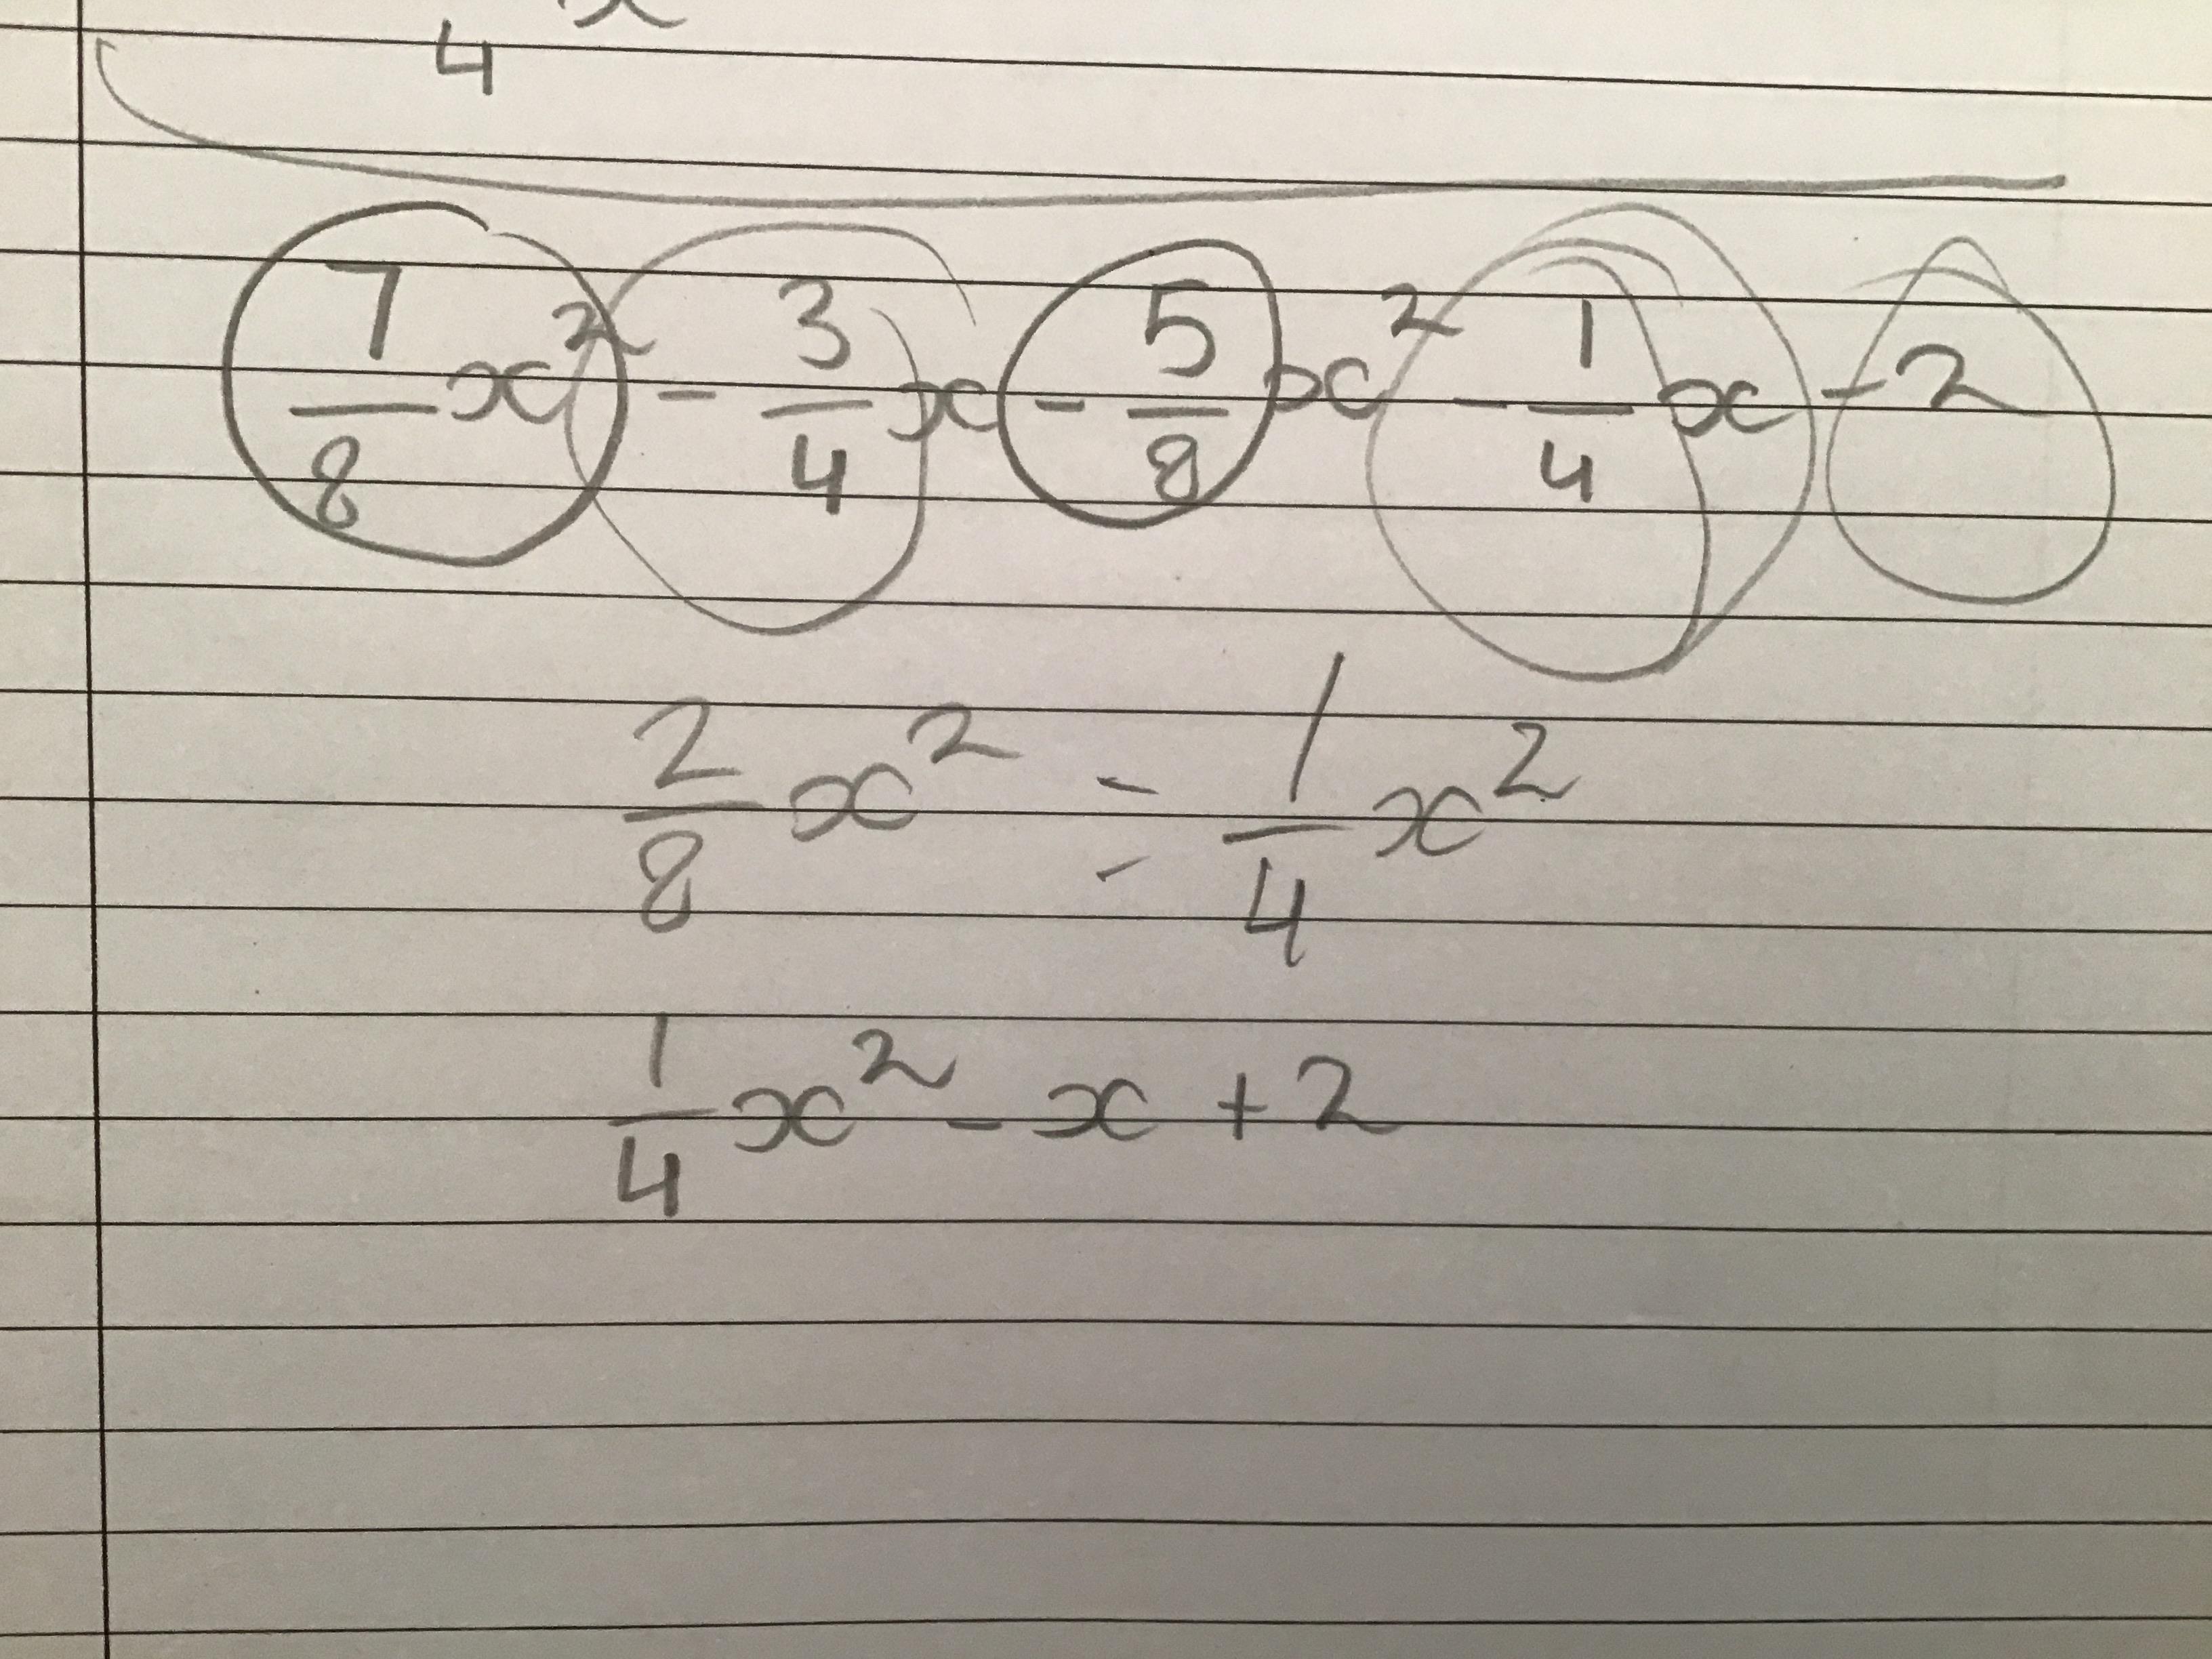 4 x
7/8 x² - 3/4 x - 5/8 x² - 1/4 x - 2
2/8 x² = 1/4 x²
1/4 x² - x + 2